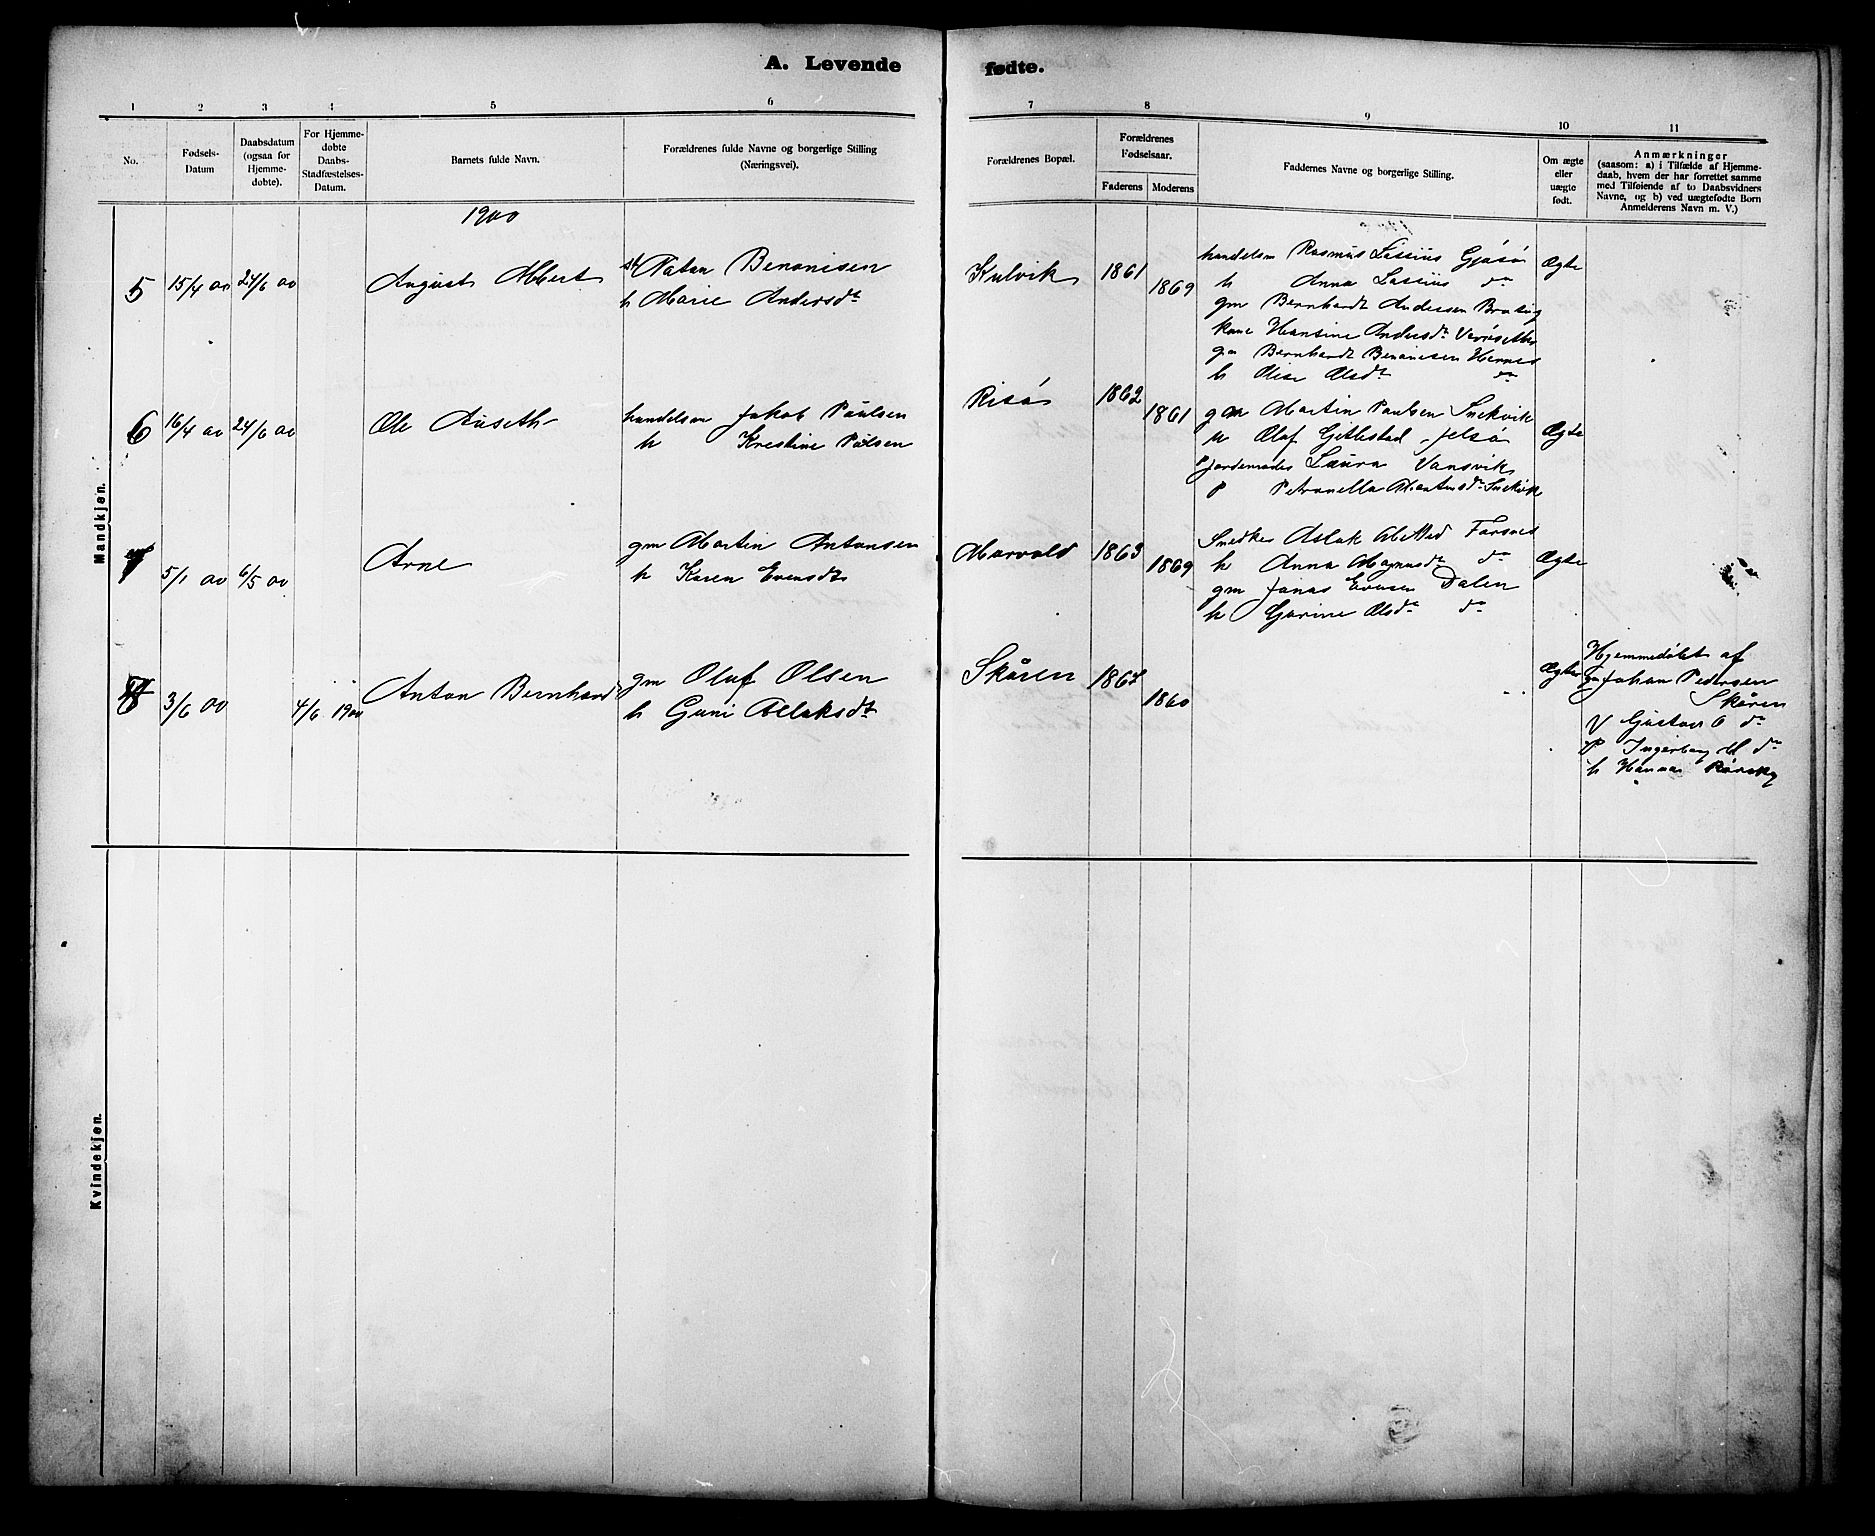 A. Levende fødte.
1 2 3 4 5 6 7 8 9 10 11
No.
Fødsels-
Datum
Daabsdatum
(ogsaa for
Hjemme-
døbte).
For Hjemme-
døbte
Daabs-
Stadfæstelses-
Datum.
Barnets fulde Navn.
Forældrenes fulde Navne og borgerlige Stilling
(Næringsvei).
Forældrenes Bopæl.
Forældrenes
Fødselsaar.
Faderens Moderens
Faddernes Navne og borgerlige Stilling.
Om ægte
eller
uægte
født.
Anmærkninger
(saasom: a) i Tilfælde af Hjemme-
daab, hvem der har forrettet samme
med Tilføiende af to Daabsvidners
Navne, og b) ved uægtefødte Børn
Anmelderens Navn m. V.)
Mandkjøn.
1900
5 15/4 00 24/6 00 August Albert
Benonisen
h Marie Andersdt
Kulvik 1861 1869
handelsm Rasmus Lossius Gjøsø
h Anna Lossius do
gm Bernhardt Andersen
kone Hansine Andersdt
gm Bernhardt Benonisen Hernes
h Olsdt do
Ægte
6 16/4 00 24/6 00 Ole Auseth
handelsm Jakob Paulsen
h Kristine Pålsen
Risø 1862 1861
gm Martin Paulsen Snekvik
u Oluf
jordemoder Laura Vansvik
p Petronella Martinsdt Snekvik
Ægte
7 5/1 00 6/5 00 Arne
gm Martin Antonsen
h Karen Evensdt
Marvold 1863 1869
Snedker Aslak
h Anna Magnusdt do
gm Jonas Evensen Dalen
h Gurine Olsdt do
Ægte
8 3/6 00 4/6 1900 Anton Bernhard
gm Oluf Olsen
h Guni Aslaksdt
Skåren 1867 1860
Ægte
Hjemmedøbt af
gm Johan Pedersen
Skåren
V Gustav O do
P Ingeborg M do
h Hanna
Kvindekjøn.